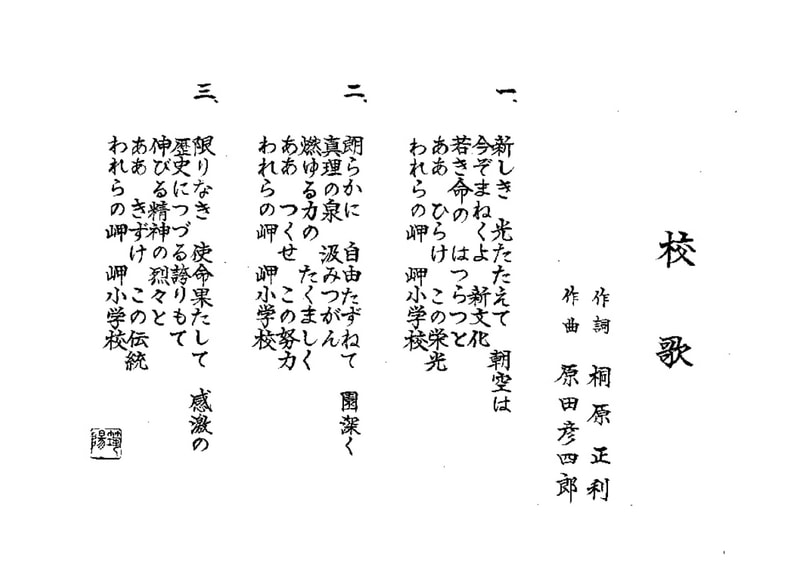 校歌
作詞 桐原正利
作曲 原田彦四郎
一、
新しき 光たたえて 朝空は
今ぞまねくよ 新文化
若き命の はつらつと
ああ ひらけ この栄光
われらの岬 岬小学校
二、
朗らかに 自由たずねて 園深く
真理の泉 汲みつがん
燃ゆる力の たくましく
ああ つくせ この努力
われらの岬 岬小学校
三、
限りなき 使命果たして 感激の
歴史につづる誇りもて
伸びる精神の烈々と
ああ きずけ この伝統
われらの岬 岬小学校